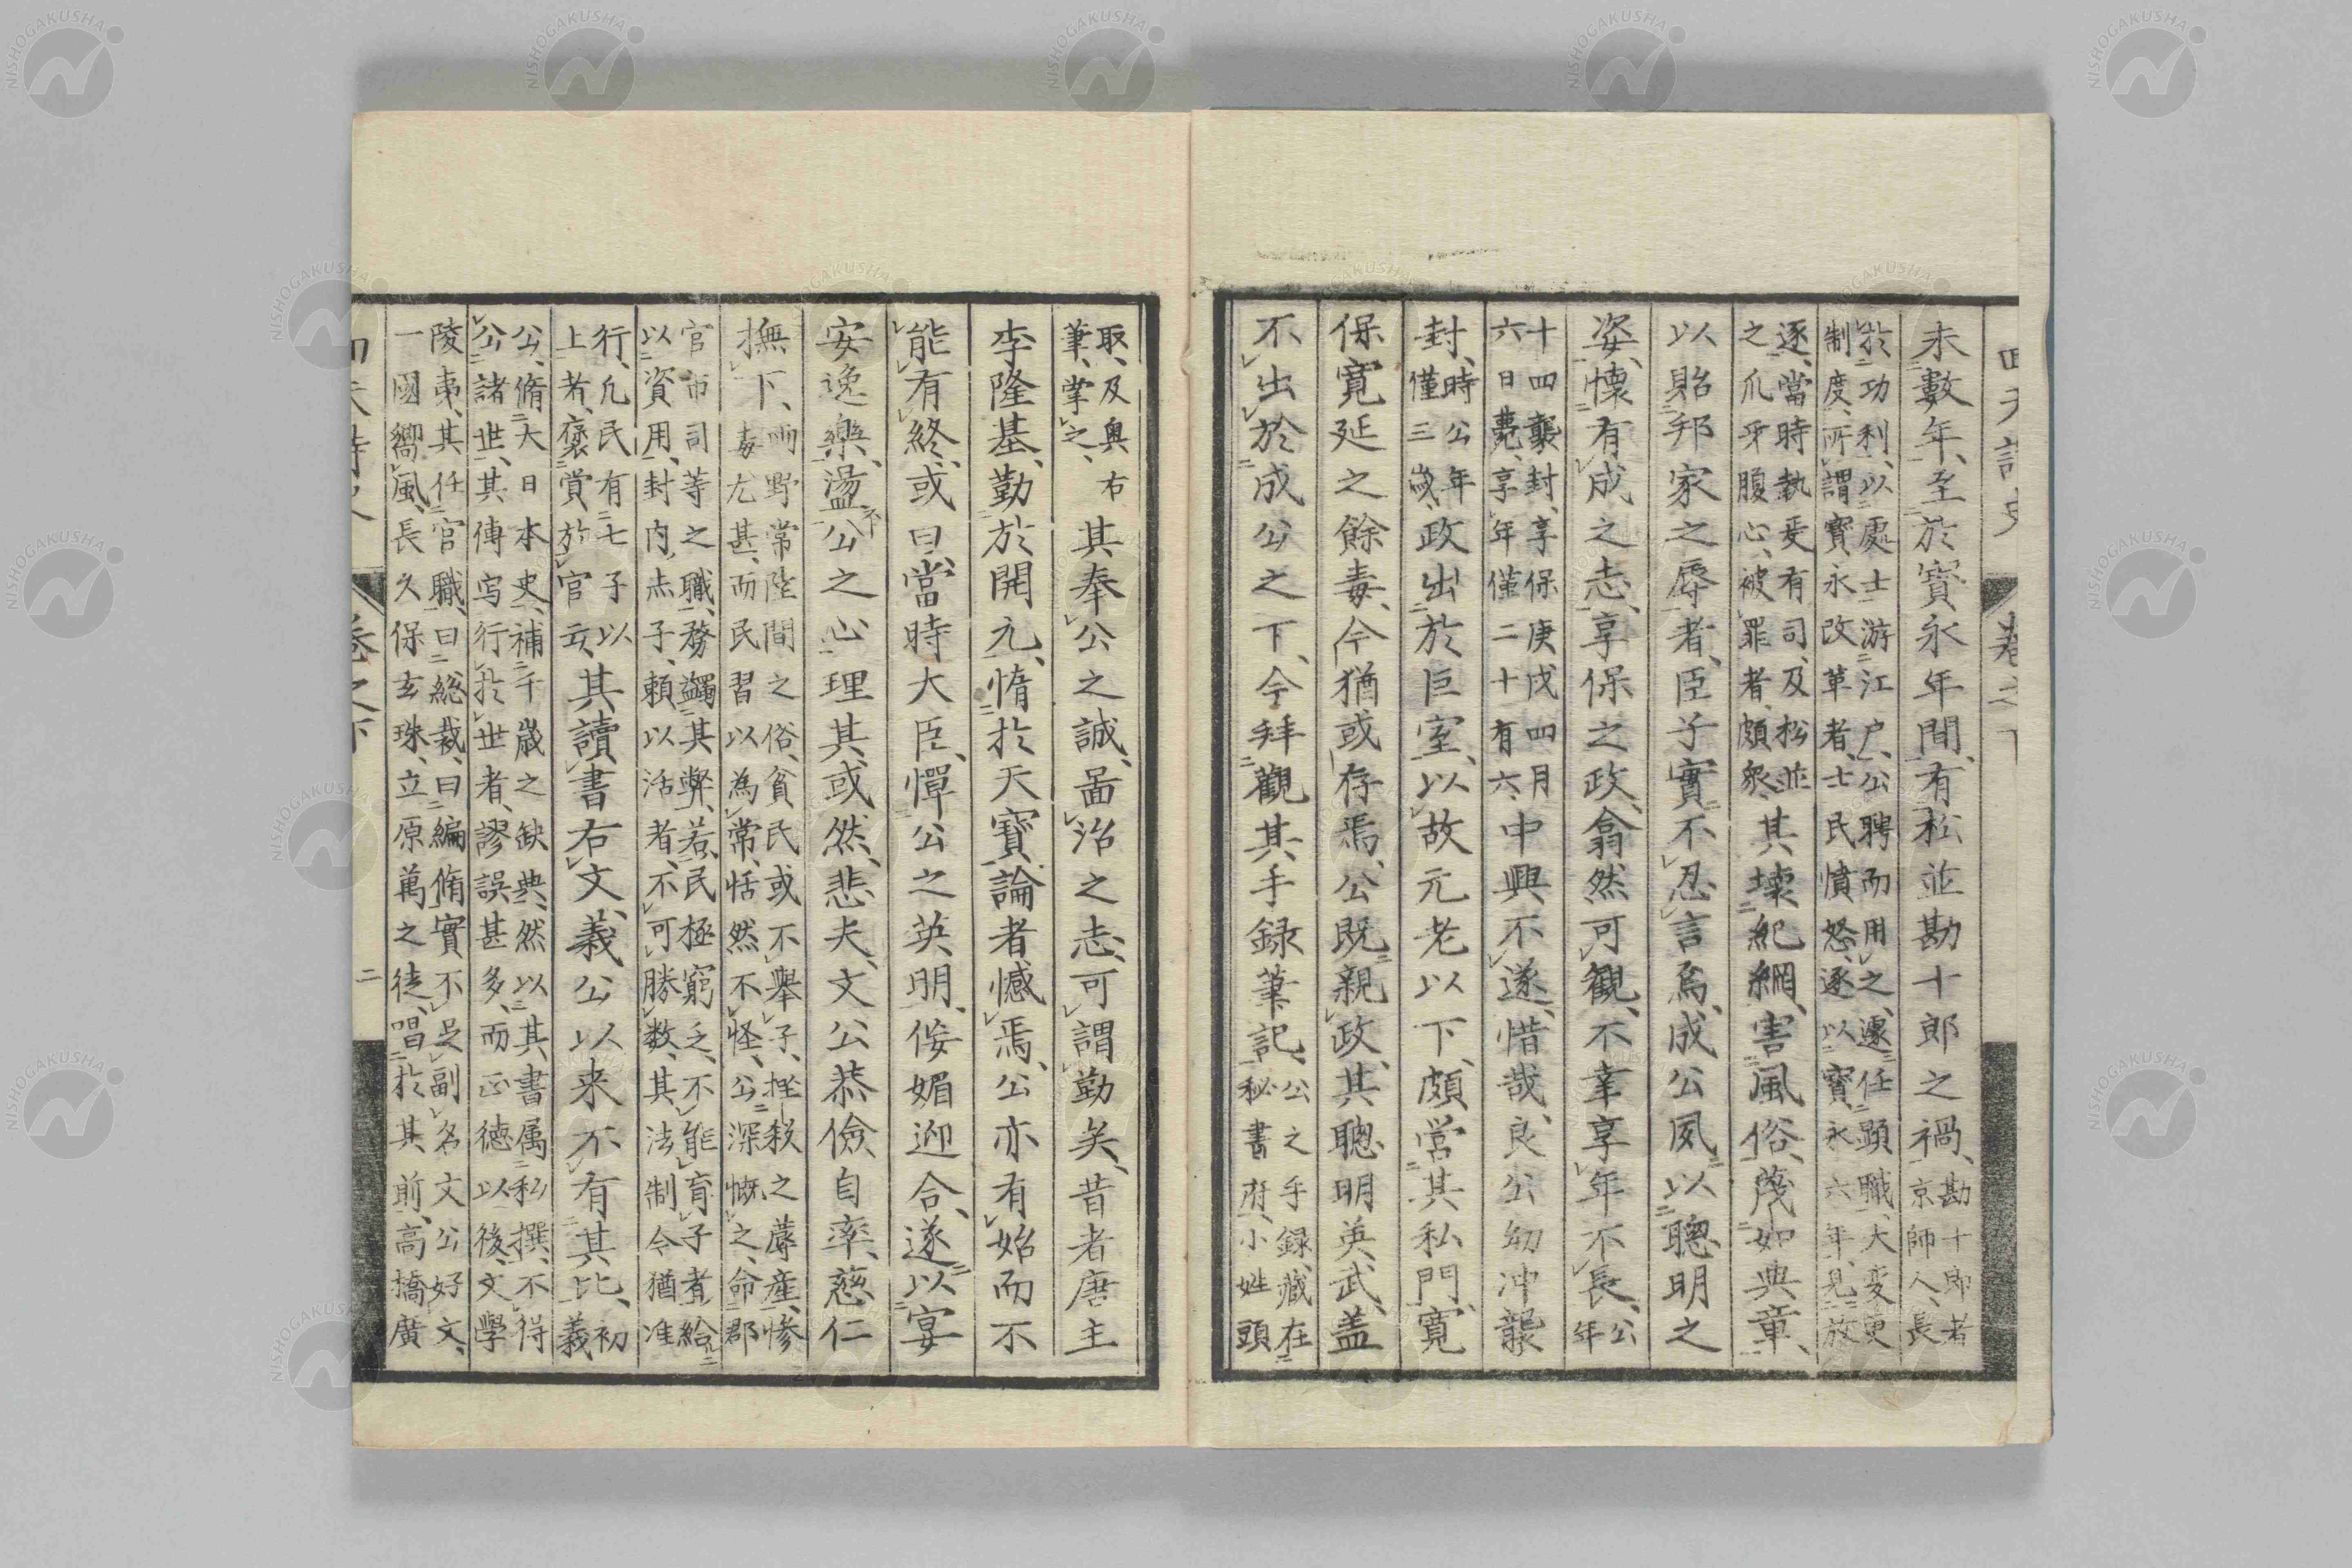 未數年、至於寶永年間、有松並勘十郎之禍、勘十郎者京師人、長
於功利、以處士游江戸、公聘而用之、遽任顯職、大変更
制度、所謂寶永改革者、士民憤怒、遂以寶永六年、見放
逐、當時執爰有司、及松並
之爪牙腹心、被罪者、頗衆、其壊紀綱、害風俗、蔑如典章、
以貽邦家之辱者、臣子實不忍言焉、成公夙以聰明之
姿、懐有成之志、享保之政、翕然可觀、不幸享年不長、公年
十四襲封、享保庚戌四月
六日薨、享年僅二十有六、中興不遂、惜哉、良公幼冲襲
封、時公年僅三歳、政出於巨室、以故元老以下、頗営其私門、寛
保寛延之餘毒、今猶或存焉、公既親政、其聰明英武、盖
不出於成公之下、今拜觀其手録筆記、公之手録、藏在秘書府、小姓頭
取、及奥右筆、掌之、其奉公之誠、啚治之志、可謂勤矣、昔者唐主
李隆基、勤於開元、惰於天寶、論者憾焉、公亦有始而不
能有終、或曰、當時大臣、憚公之英明、佞媚迎合、遂以宴
安逸樂、蕩盪公之心、理其或然、悲夫、文公恭儉自率、慈仁
撫下、両野常陸間之俗、貧民或不舉子、摼殺之蓐産、惨
毒尤甚、而民習以為常、恬然不怪、公深慨之、命郡
官市司等之職、務蠲其弊、若民極窮乏、不能育子者、給
以資用、封内赤子、頼以活者、不可勝数、其法制令猶准
行、凡民有七子以
上者、褒賞於官云、其讀書右文、義公以来不有其比、初義
公、脩大日本史、補千歳之缺典、然以其書属私撰、不得
公諸世、其傳写行於世者、謬誤甚多、而正徳以後、文學
陵夷、其任官職、曰總裁、曰編脩、實不足副名、文公好文、
一國嚮風、長久保玄珠、立原萬之徒、唱於其前、高橋廣
巻之下
二